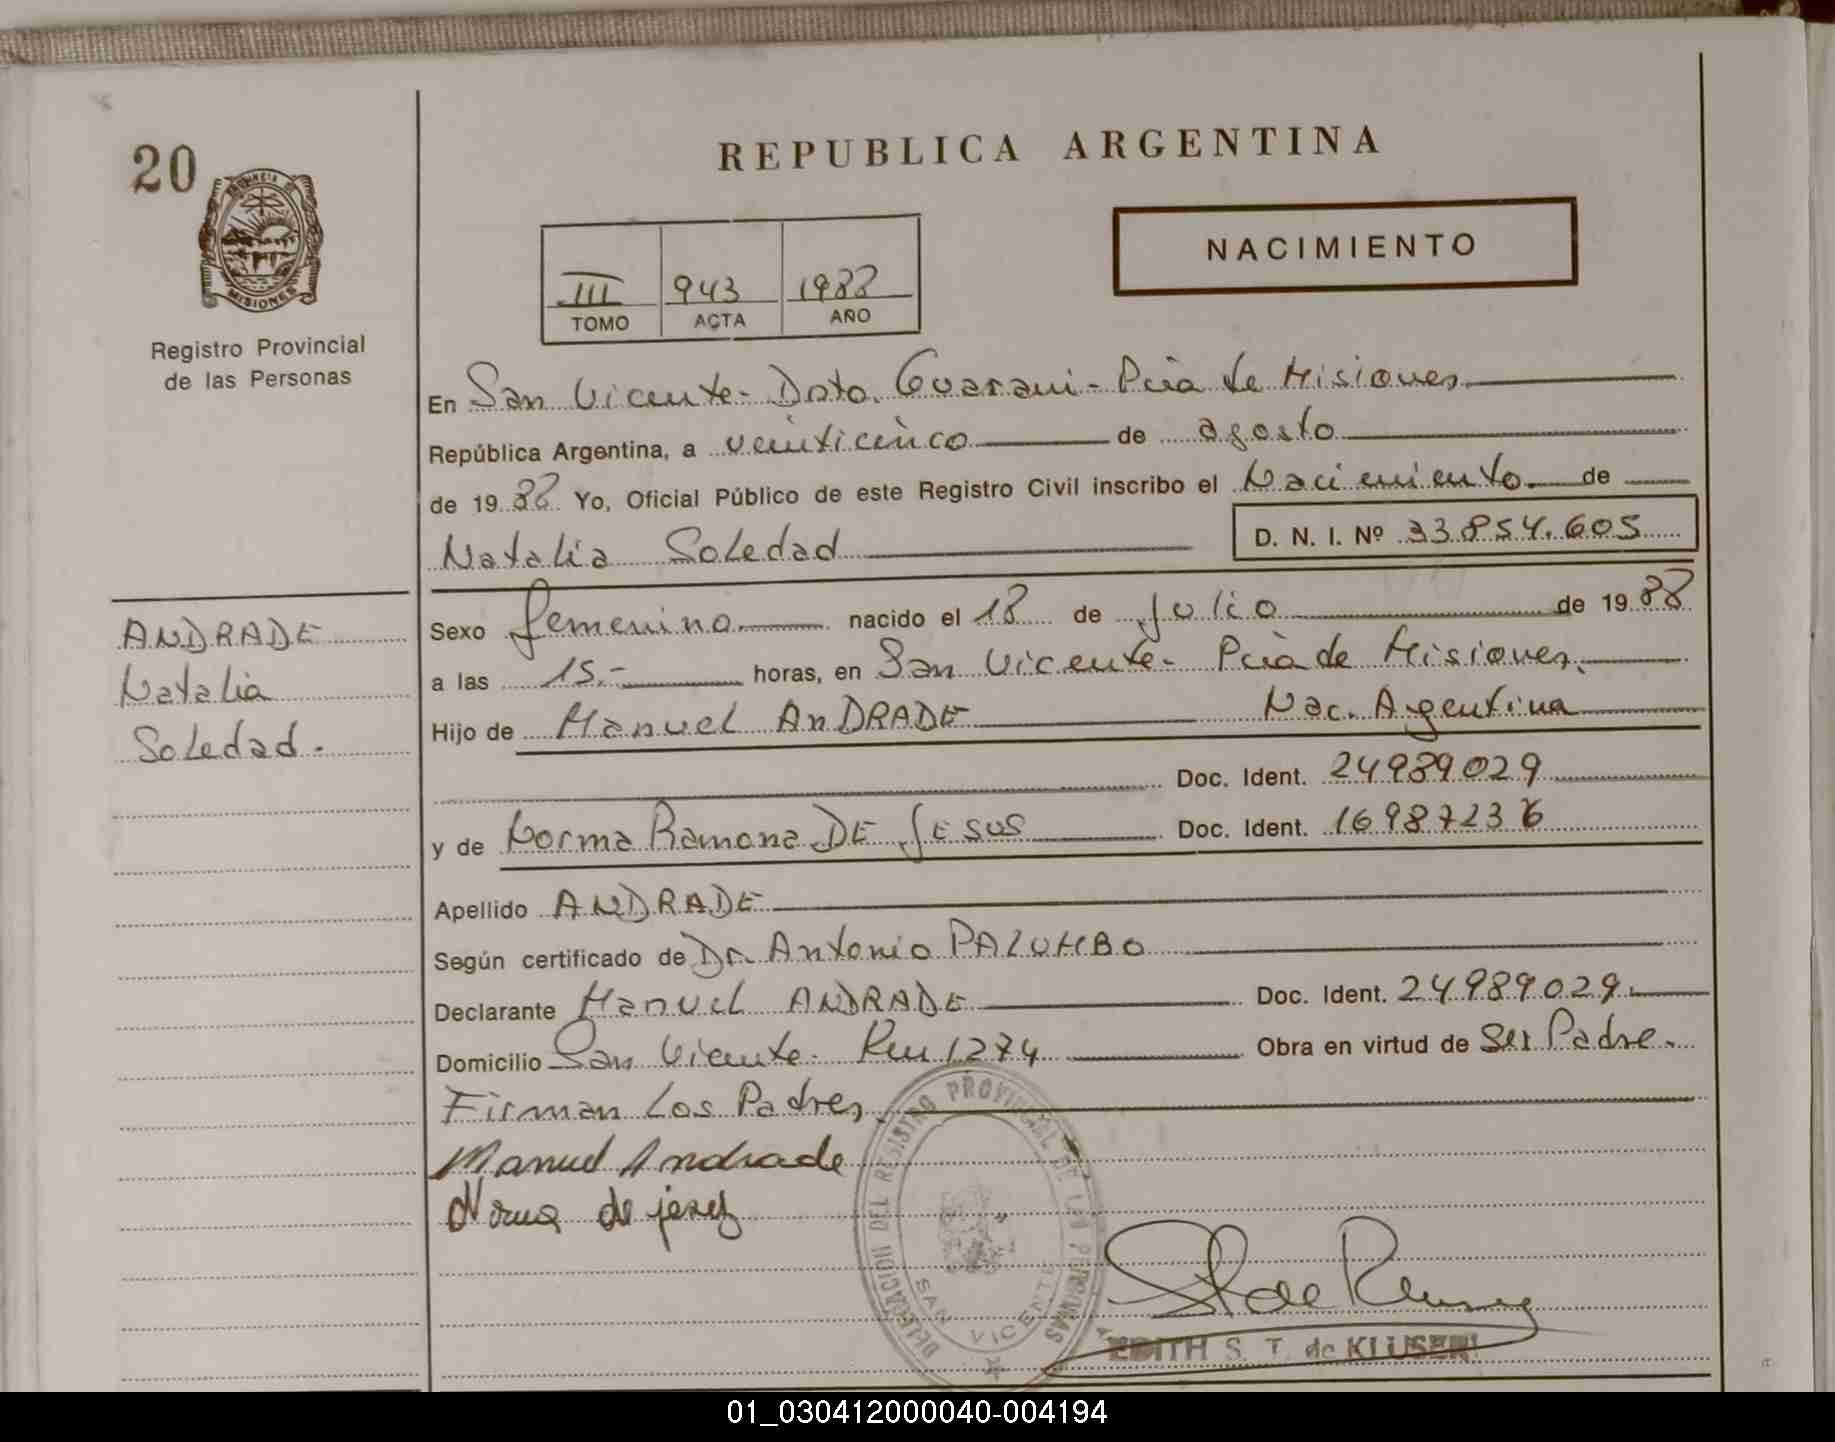 REPUBLICA ARGENTINA
20
PROVINCIA DE
MISIONES
Registro Provincial
de las Personas
NACIMIENTO
III 943 1988
TOMO ACTA AÑO
En San Vicente - Dpto. Guarani - Pcia de Misiones
República Argentina, a veinticinco de agosto
de 19 88 Yo, Oficial Público de este Registro Civil inscribo el Nacimiento de
Natalia Soledad D. N. I. Nº 33854.605
ANDRADE
Natalia
Soledad.
Sexo femenino nacido el 18 de Julio de 19 88
a las 15.- horas, en San Vicente - Pcia de Misiones.
Hijo de Manuel ANDRADE Nac. Argentina
Doc. Ident. 24989029
y de Norma Ramona DE JESUS Doc. Ident. 16987236
Apellido ANDRADE
Según certificado de Dr. Antonio PALUMBO
Declarante Manuel ANDRADE Doc. Ident. 24989029.
Domicilio San Vicente - Km 1274 Obra en virtud de Ser Padre.
Firman Los Padres
Manuel Andrade
Norma de jesus
DELEGACION DEL REGISTRO PROVINCIAL DE LAS PERSONAS
SAN VICENTE
EDITH S. T. de KLUSENER
01_030412000040-004194